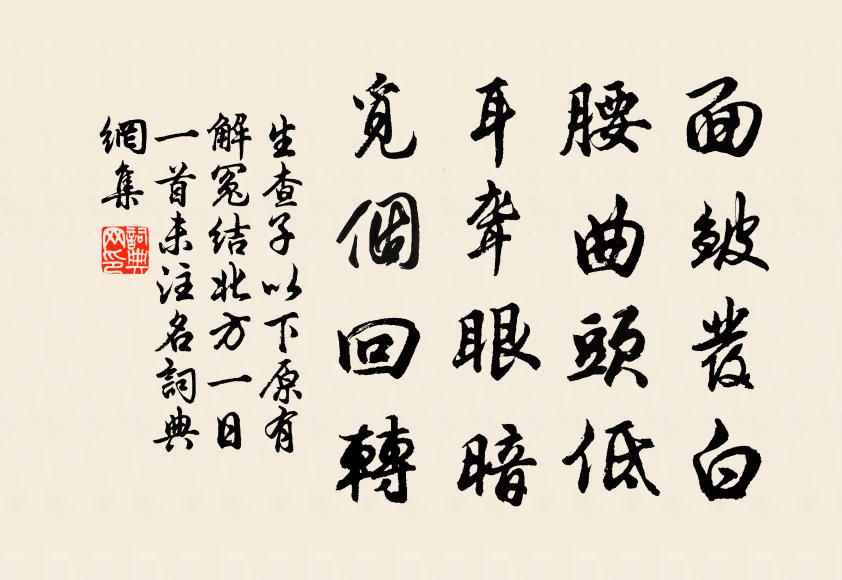 面皱發白
腰曲頭低
耳聋眼暗
覓個回轉
生查子以下原有
解冤结北方一日
一首未注名詞典
網集
詞典网印